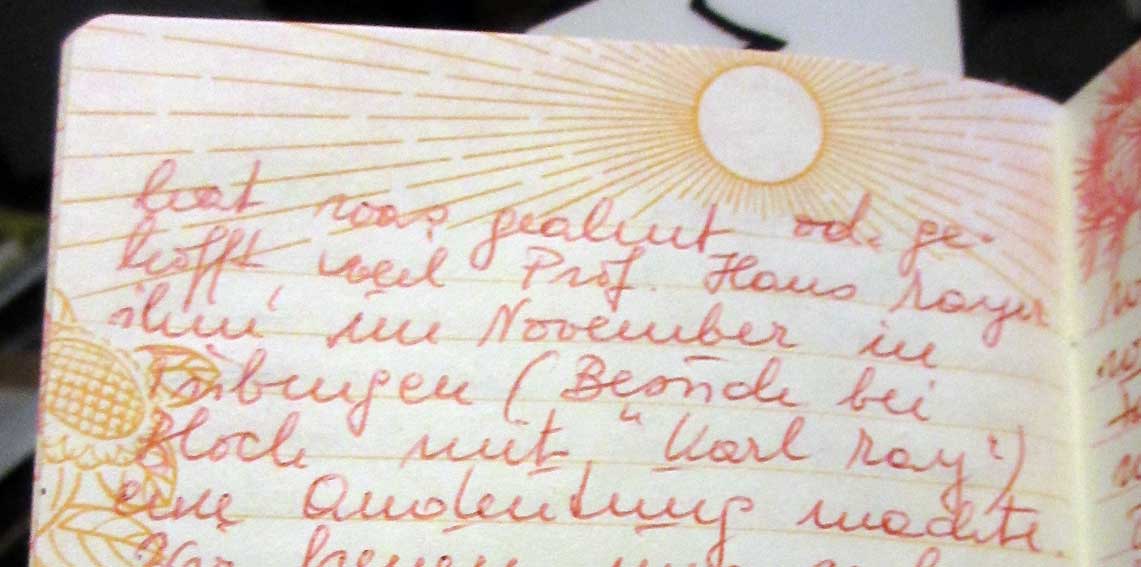 hat was geahnt od. ge-
hofft, weil Prof. Hans Mayer
ihm im November in
Tübingen (Besuch bei
Bloch mit "Karl May")
eine Andeutung machte.